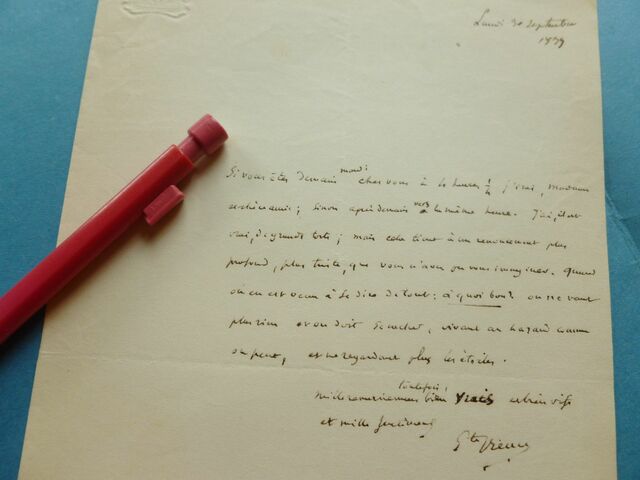 Lundi 30 septembre
1879
mardi
Si vous êtes demain chez vous à 4 heures ½ j'irai, Madame
et chère amie; sinon après demain vers la même heure. J'ai, il est
vrai, de grands torts; mais cela tient à un renoncement plus
profond, plus triste, que vous n'avez pu vous imaginer. Quand
on en est venu à se dire de tout: à quoi bon? on ne vaut
plus rien et on doit se cacher, vivant au hazard comme
on peut, et ne regardant plus les étoiles.
toutefois,
Mille souvenirs bien vrais et bien vifs
et mille